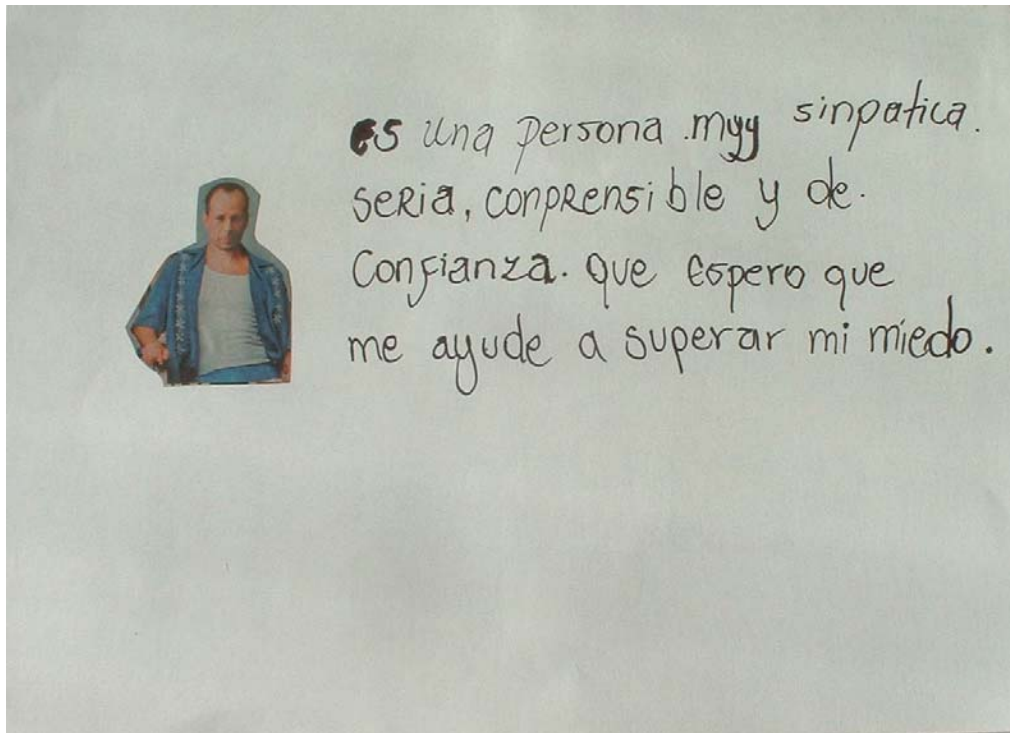 es una persona muy sinpatica.
seria, conprensible y de.
confianza. que espero que
me ayude a superar mi miedo.